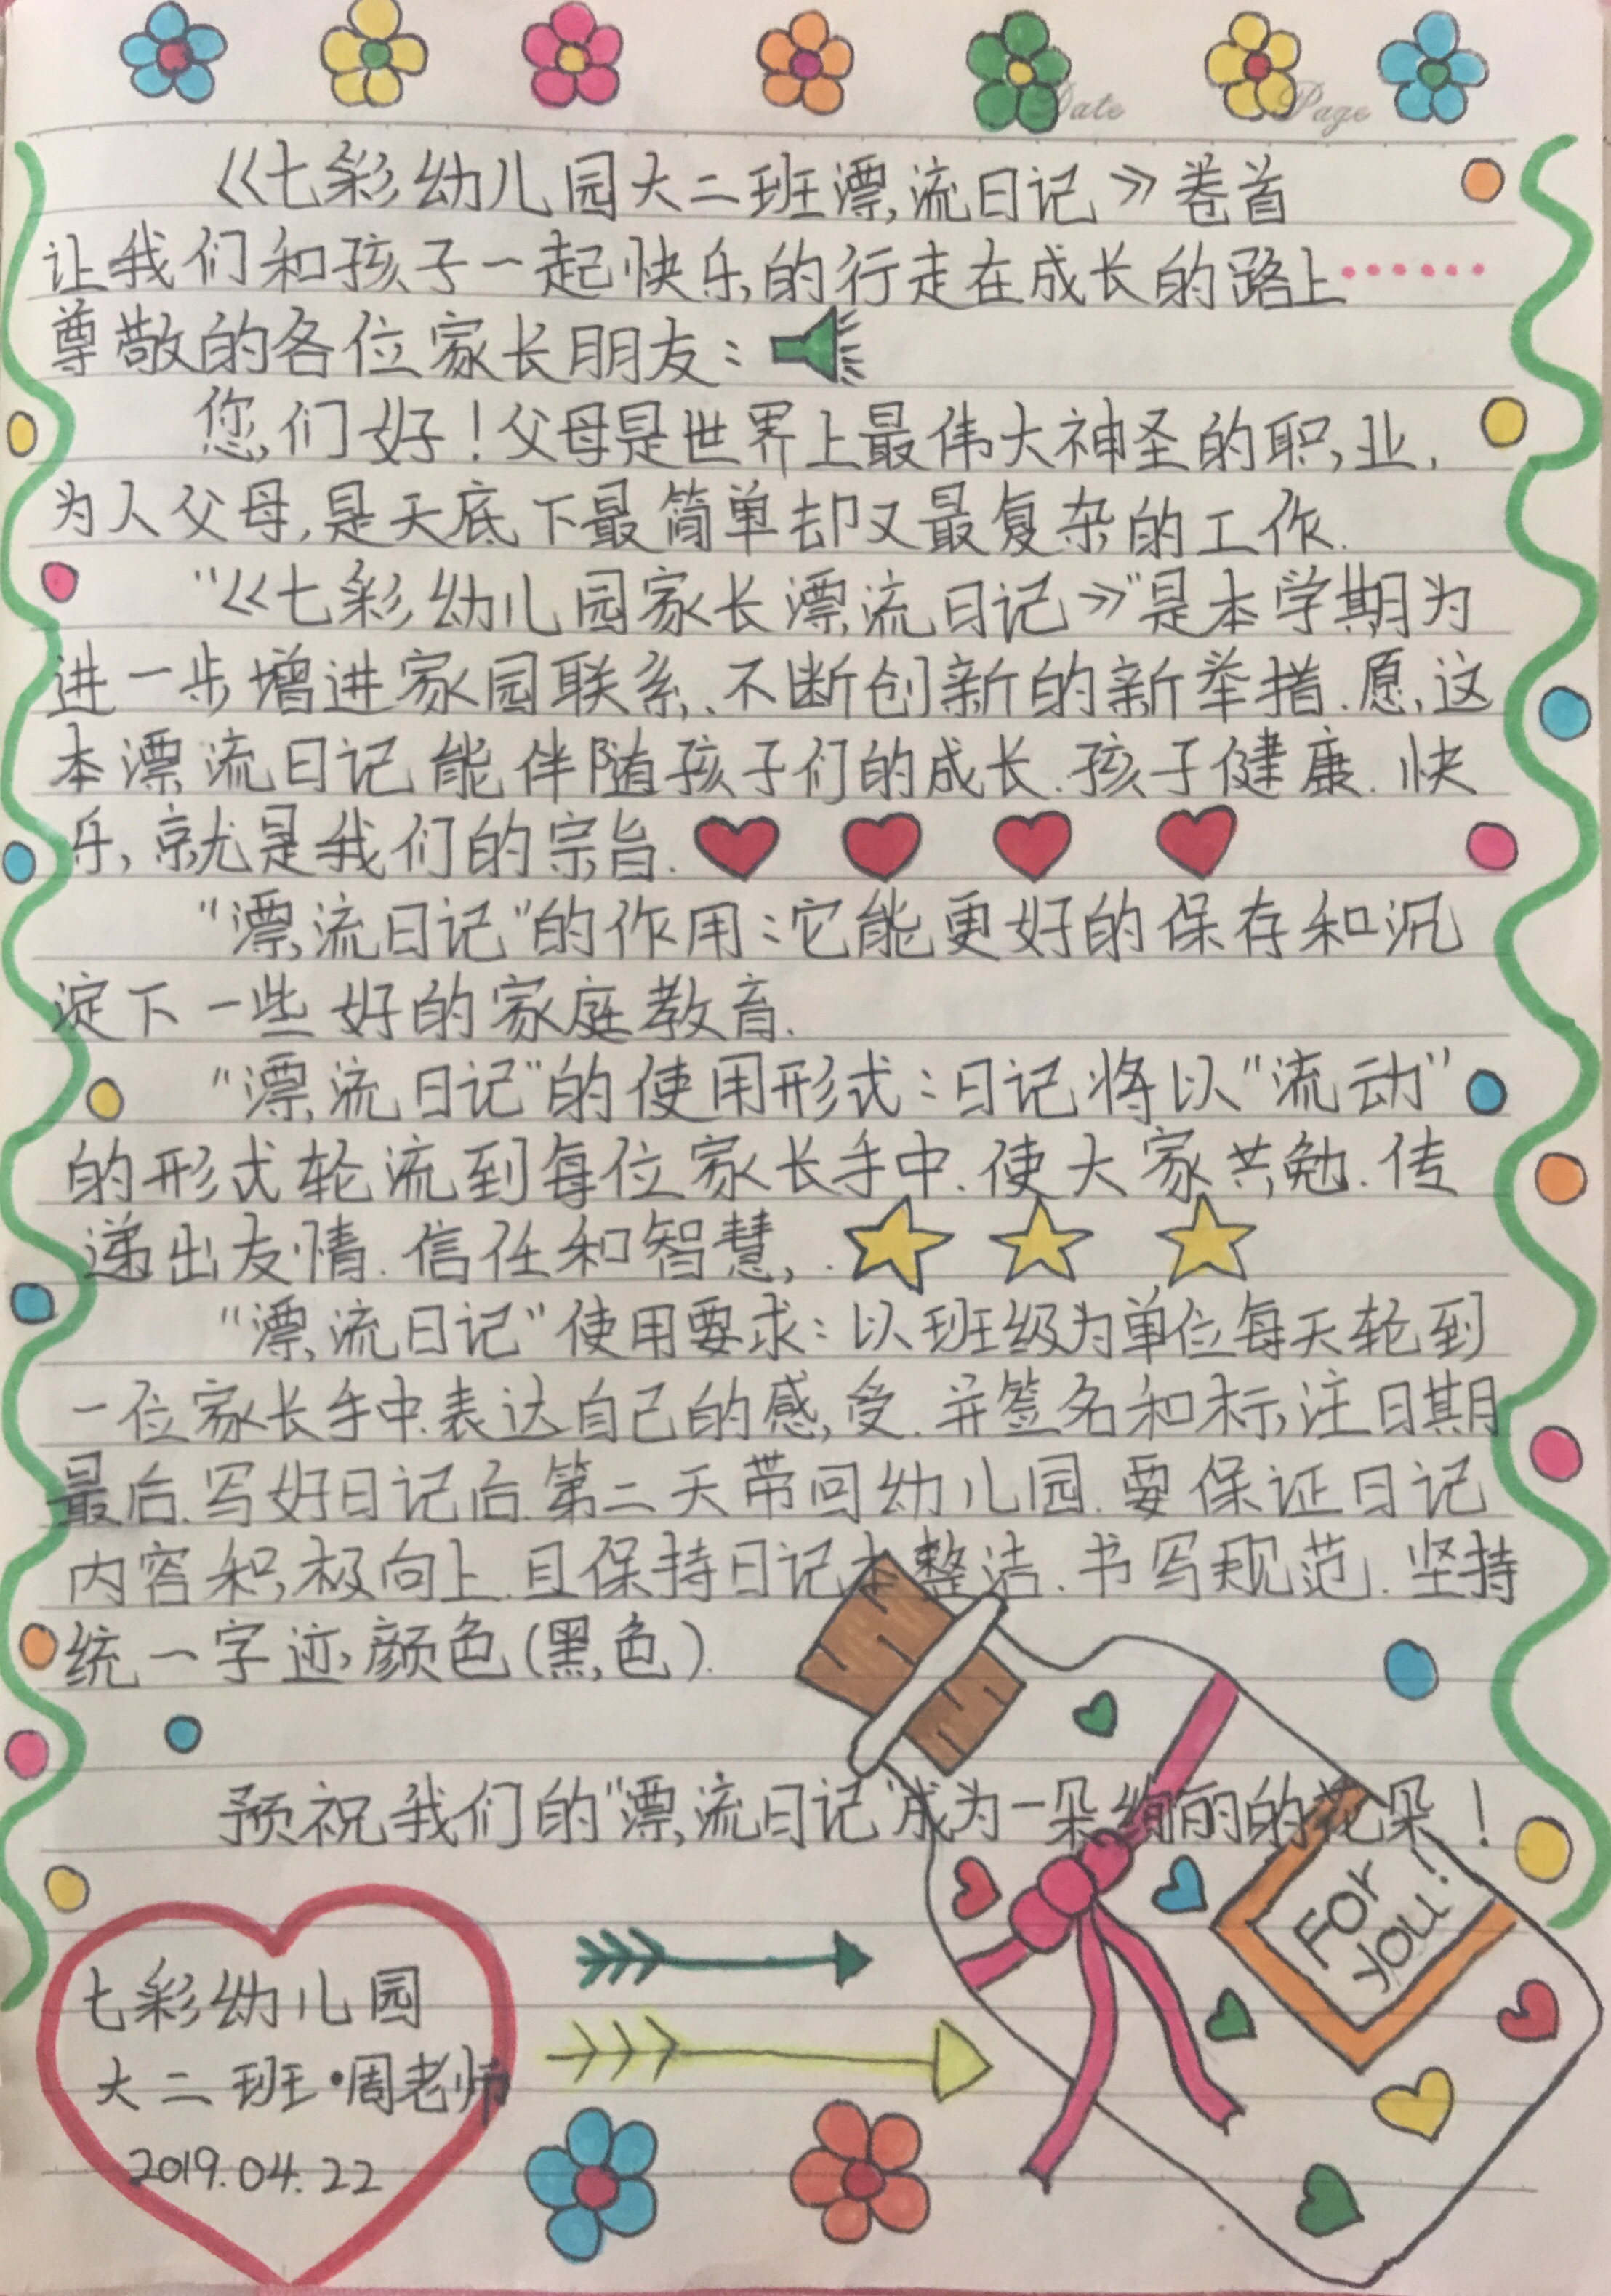 Date Page
《七彩幼儿园大二班漂流日记》卷首
让我们和孩子一起快乐的行走在成长的路上……
尊敬的各位家长朋友:
您们好!父母是世界上最伟大神圣的职业,
为人父母,是天底下最简单却又最复杂的工作.
"《七彩幼儿园家长漂流日记》"是本学期为
进一步增进家园联系、不断创新的新举措.愿这
本漂流日记能伴随孩子们的成长.孩子健康.快
乐,就是我们的宗旨.
"漂流日记"的作用:它能更好的保存和沉
淀下一些好的家庭教育.
"漂流日记"的使用形式:日记将以"流动"
的形式轮流到每位家长手中.使大家共勉.传
递出友情.信任和智慧,.
"漂流日记"使用要求:以班级为单位每天轮到
一位家长手中.表达自己的感受.并签名和标注日期
最后.写好日记后.第二天带回幼儿园.要保证日记
内容积极向上.且保持日记本整洁.书写规范.坚持
统一字迹,颜色(黑色).
预祝我们的"漂流日记"成为一朵绚丽的的花朵!
For
you!
七彩幼儿园
大二班•周老师
2019.04.22